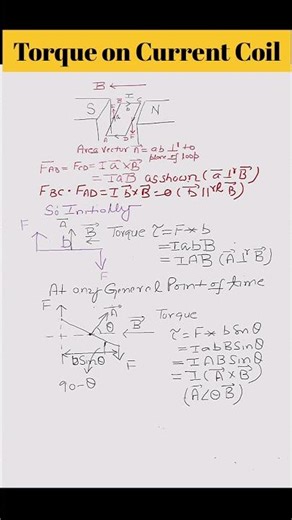 Torque on Current Coil
B
I
S
N
Area vector A⃗ = ab ⊥ʳ to
plane of loop
F̄AB = FCD = I a⃗ × B⃗
= IaB as shown (a⃗ ⊥ʳ B⃗)
FBC = FAD = I b⃗ × B⃗ = 0 (b⃗ ||ʳᵈ B⃗)
So Initially
A⃗
F
b
B⃗
F
Torque τ = F * b
= IabB
= IAB (A⃗ ⊥ʳ B⃗)
At any General Point of time
F
A⃗
θ
B⃗
bSinθ
F
90-θ
Torque
τ = F * bSinθ
= IabBSinθ
= IABSinθ
= I(A⃗ × B⃗)
(A⃗ ∠θ B⃗)